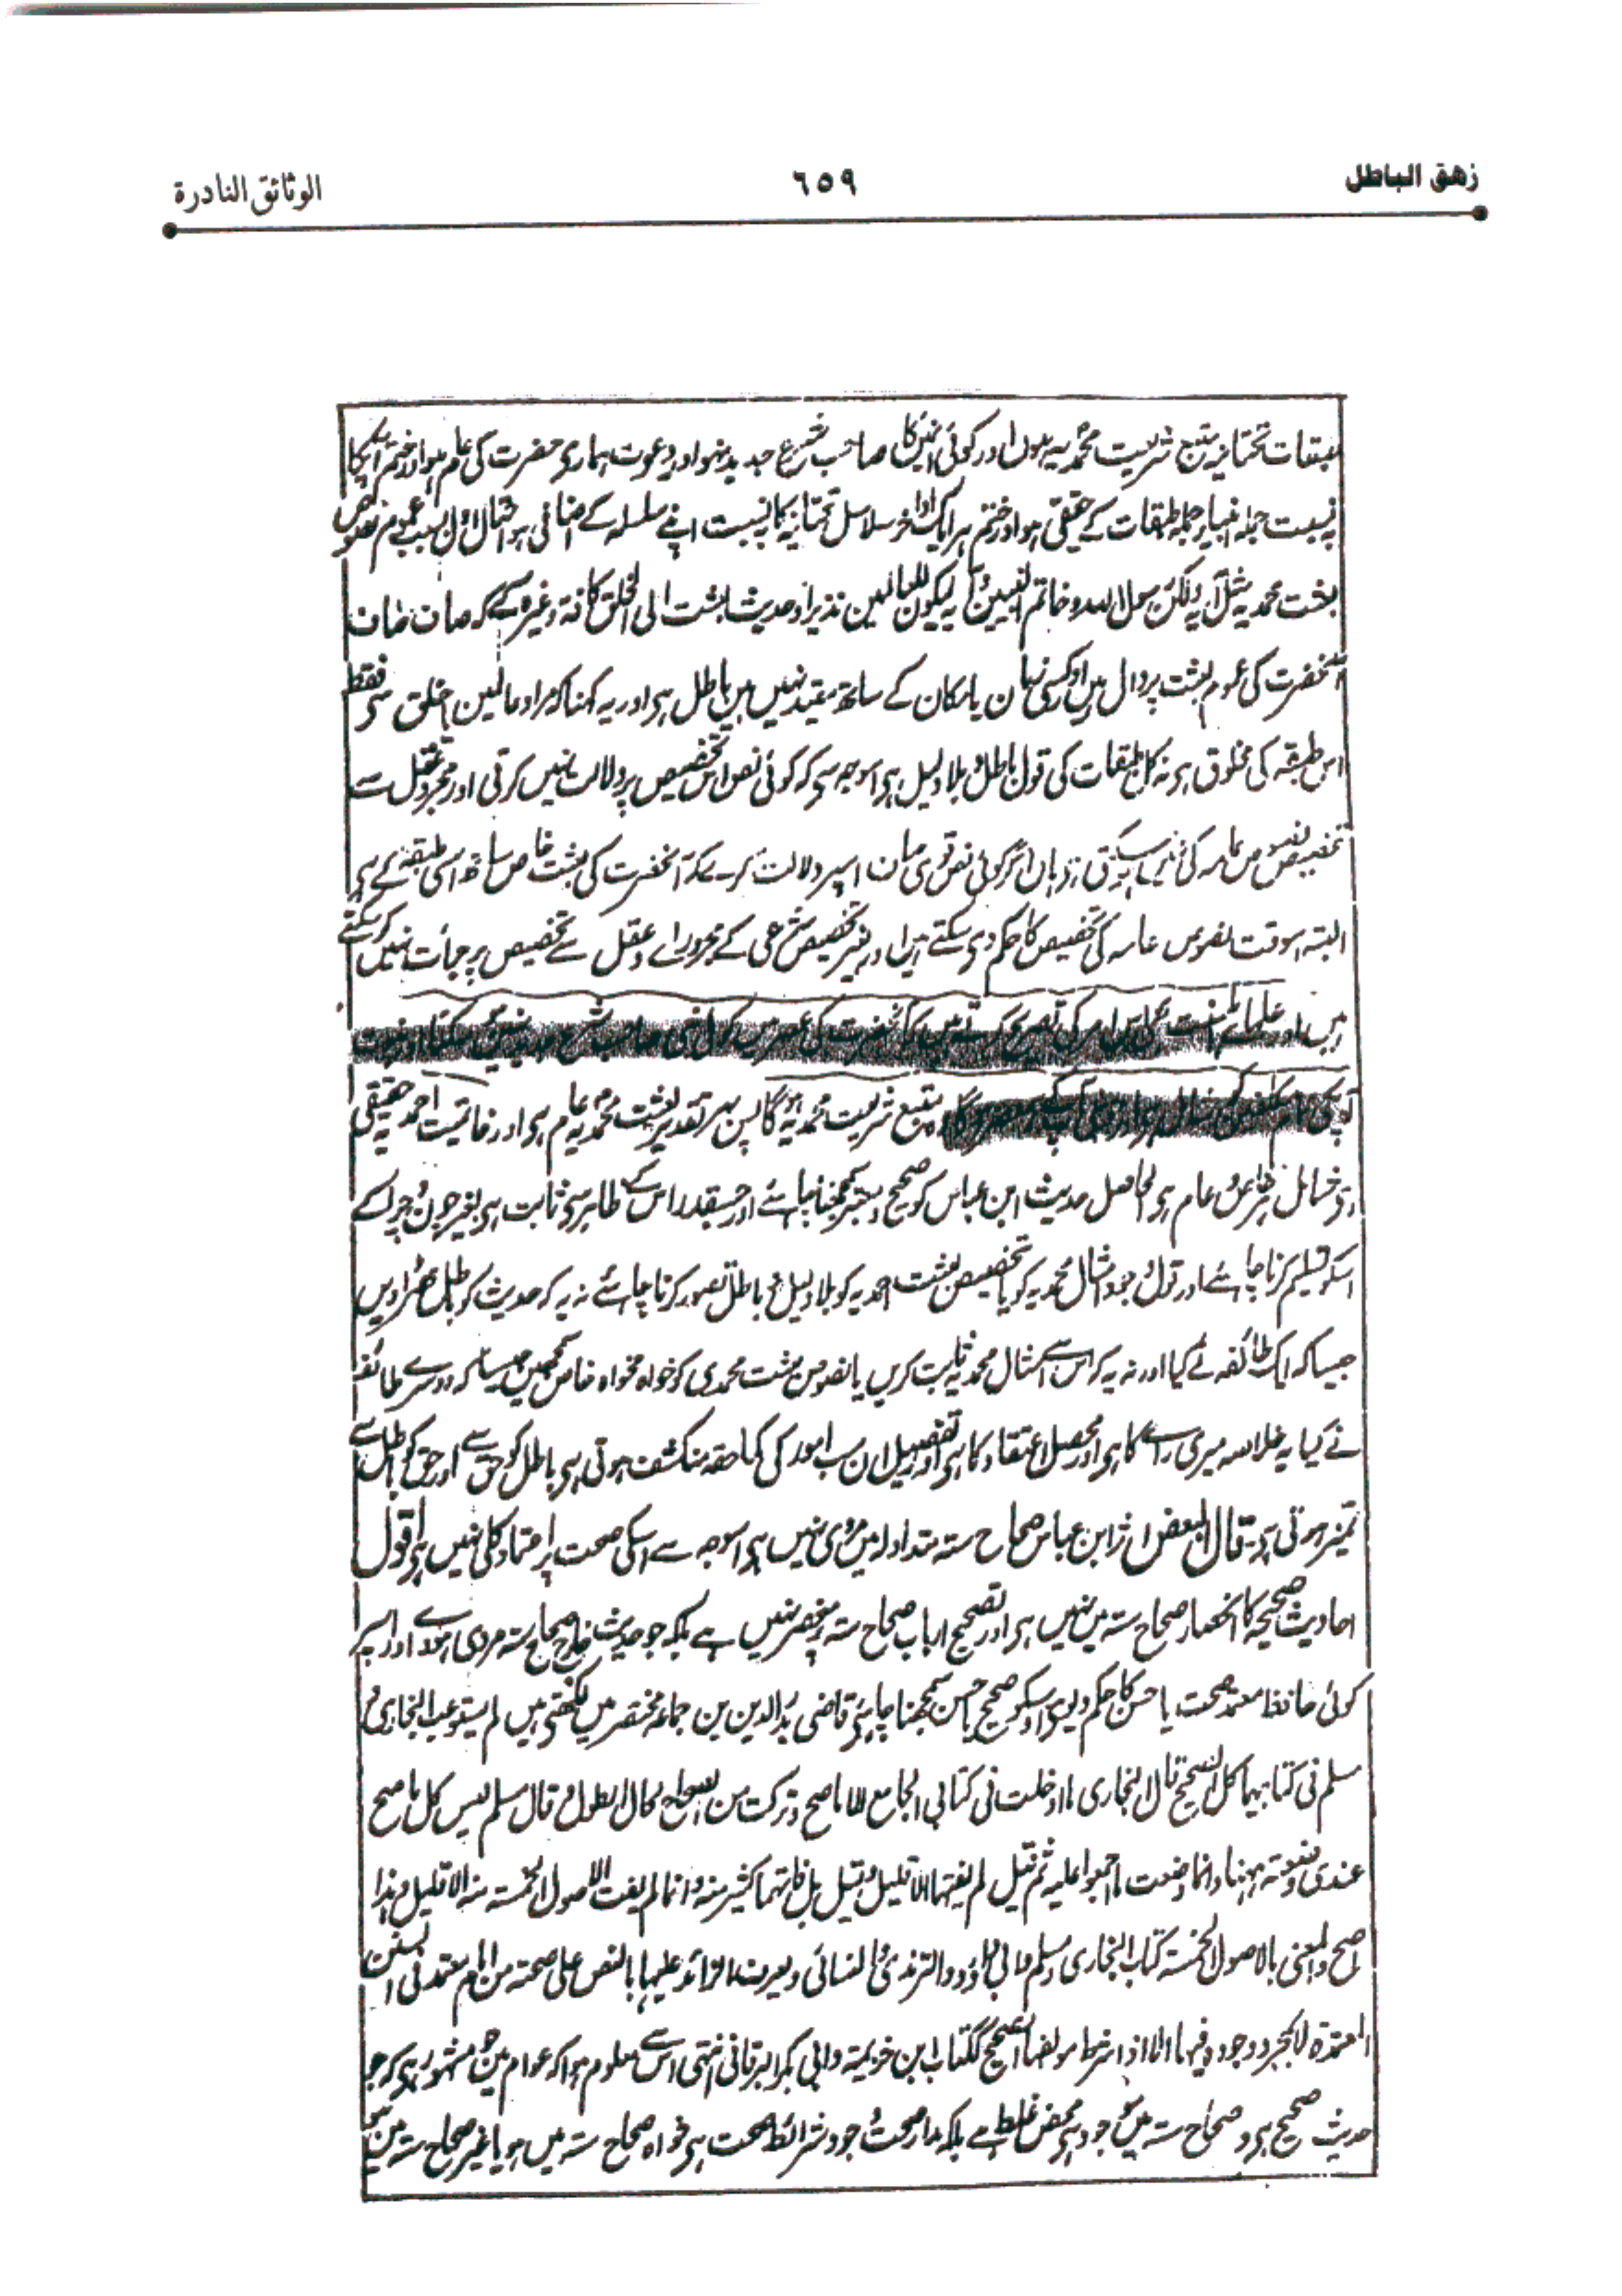 زهق الباطل
٦٥٩
الوثائق النادرة
طبقات تحتانیہ متبع شریعت محمدیہ ہوں اور کوئی انمیں کا صاحب شرع جدید نہو اور دعوت ہماری حضرت کی عام ہو اور ختم آپکا
بنسبت جملہ انبیاء جملہ طبقات کے حقیقی ہو اور ختم ہر ایک اواخر سلاسل تحتانیہ کا بنسبت اپنے سلسلہ کے اضافی ہو احتمال اول بسبب عموم نصوص
بعثت محمدیہ مثل آیہ ولکن رسول اللہ وخاتم النبیین و آیہ لیکون للعالمین نذیرا وحدیث بعثت الی الخلق کافۃ وغیرہ کے کہ صاف صاف
آنحضرت کی عموم بعثت پر دال ہیں اور کسی زمان یا مکان کے ساتھ مقید نہیں ہیں باطل ہی اور یہ کہنا کہ مراد عالمین یا خلق سی فقط
اس طبقہ کی مخلوق ہی نہ کل طبقات کی قول باطل و بلا دلیل ہی اسوجہ سی کہ کوئی نص اس تخصیص پر دلالت نہیں کرتی اور مجرد عقل سے
تخصیص نصوص عامہ کی نہیں ہاں اگر کوئی نص اسپر دلالت کرے کہ آنحضرت کی بعثت خاص ساتھ اسی طبقہ کے ہی
البتہ اسوقت نصوص عامہ کی تخصیص کا حکم دی سکتے ہیں اور بغیر تخصیص شرعی کے مجرد رائے و عقل سے تخصیص پر جرأت نہیں کر سکتے
ہیں اور علمائے اہلسنت بھی اس امر کی تصریح کرتے ہیں کہ آنحضرت کی عصر میں کوئی نبی صاحب شرع جدید نہیں ہو سکتا اور نبوت
آپکی عام متبع شریعت محمدیہ ہوگا پس بہر تقدیر بعثت محمدیہ عام ہی اور خاتمیت احمدیہ حقیقی
عام ہی الحاصل حدیث ابن عباس کو صحیح و معتبر سمجھنا چاہئے اور جسقدر اس کے ظاہر سی ثابت ہی بغیر چون و چرا کے
اسکو تسلیم کرنا چاہئے اور قول وجود امثال محمدیہ کو یا تخصیص بعثت احمدیہ کو بلا دلیل و باطل تصور کرنا چاہئے نہ یہ کہ حدیث کو باطل ٹھراویں
جیسا کہ ایک طائفہ نے کیا اور نہ یہ کہ اس سے امثال محمدیہ ثابت کریں یا نصوص بعثت محمدی کو خواہ مخواہ خاص سمجھیں جیسا کہ دوسرے طائفہ
نے کیا یہ خلاصہ میری رائے کا ہی اور محصل اعتقاد کا ہی اور تفصیل ان سب امور کی کما حقہ منکشف ہوتی ہی باطل کو حق سے اور حق کو باطل سے
تمیز ہوتی ہی قال البعض اثر ابن عباس صحاح ستہ متداولہ میں مروی نہیں ہی اسوجہ سے اسکی صحت پر اعتماد کلی نہیں ہی اقول
احادیث صحیحہ کا انحصار صحاح ستہ میں نہیں ہی اور تصحیح ارباب صحاح ستہ پر منحصر نہیں ہے بلکہ جو حدیث خارج صحاح ستہ مروی ہووے اور اسپر
کوئی حافظ معتمد صحت یا حسن کا حکم دیوی اوسکو صحیح یا حسن سمجھنا چاہئی قاضی بدر الدین بن جماعہ مختصر میں لکھتی ہیں لم یستوعب البخاری و
مسلم فی کتابیہما کل الصحیح قال البخاری ما ادخلت فی کتابی الجامع الا ما صح وترکت من الصحاح لحال الطول و قال مسلم لیس کل ما صح
عندی وضعتہ ہہنا وانما وضعت ما اجمعوا علیہ ثم قیل لم یفتہما الا قلیل وقیل بل فاتہما کثیر منہ وانما لم یفت الاصول الخمسۃ منہ الا قلیل وہذا
اصح والمعنی بالاصول الخمسۃ کتاب البخاری ومسلم وابی داؤد والترمذی والنسائی ویعرف الزائد علیہا بالنص علی صحتہ من امام معتمد فی السنن
المعتمدۃ لا بمجرد وجودہ فیہا الا اذا شرط مولفہا الصحیح ککتاب ابن خزیمۃ وابی بکر البرقانی انتہی اس سے معلوم ہوا کہ عوام میں جو مشہور ہی کہ جو
حدیث صحیح ہی وہ صحاح ستہ میں موجود ہی محض غلط ہے بلکہ مدار صحت وجود شرائط صحت ہی خواہ صحاح ستہ میں ہو یا غیر صحاح ستہ میں